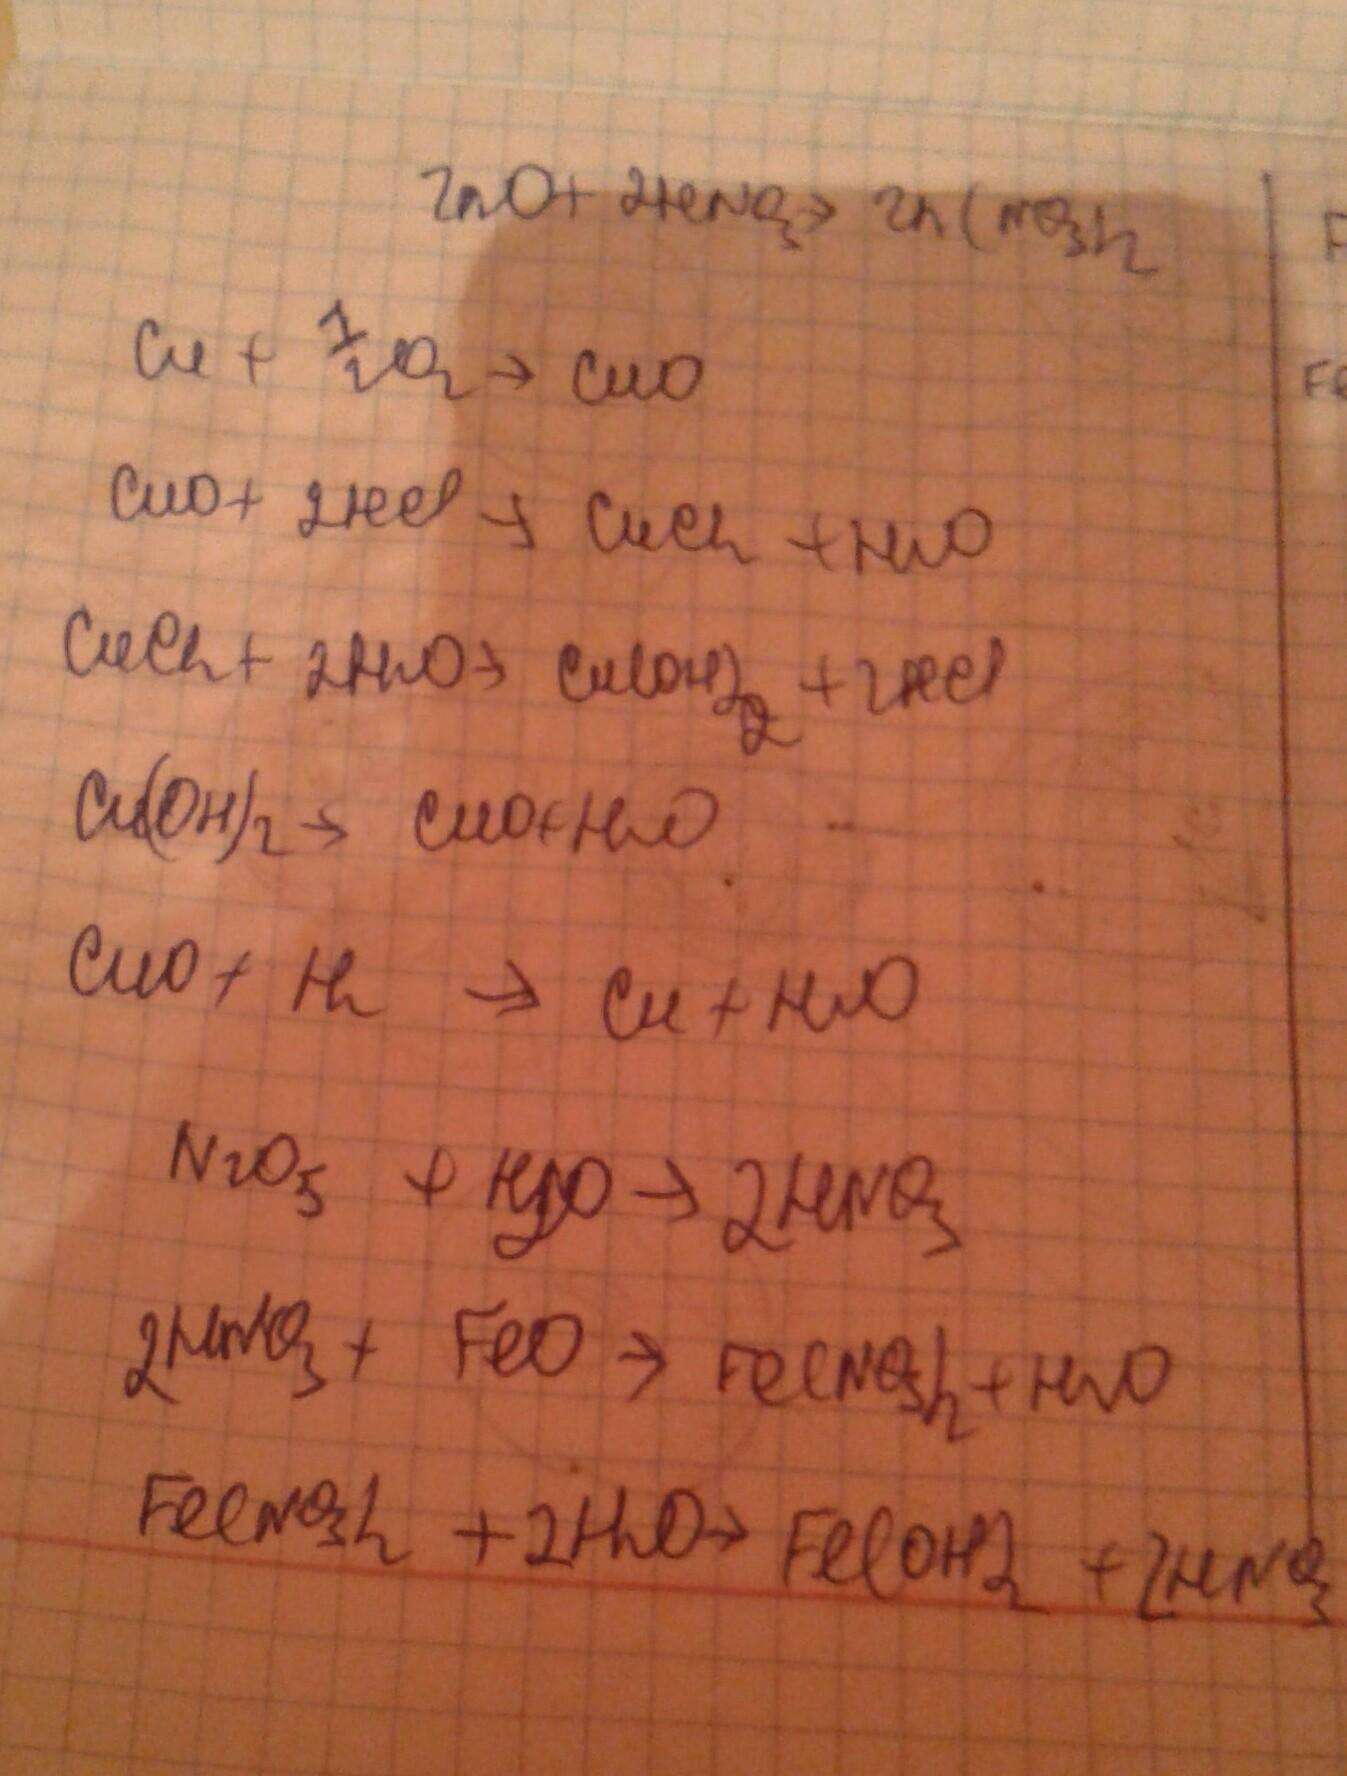 ZnO + 2HNO₃ → Zn(NO₃)₂
Cu + 1/2 O₂ → CuO
CuO + 2HCl → CuCl₂ + H₂O
CuCl₂ + 2H₂O → Cu(OH)₂ + 2HCl
Cu(OH)₂ → CuO + H₂O
CuO + H₂ → Cu + H₂O
N₂O₅ + H₂O → 2HNO₃
2HNO₃ + FeO → Fe(NO₃)₂ + H₂O
Fe(NO₃)₂ + 2H₂O → Fe(OH)₂ + 2HNO₃
F
Fe